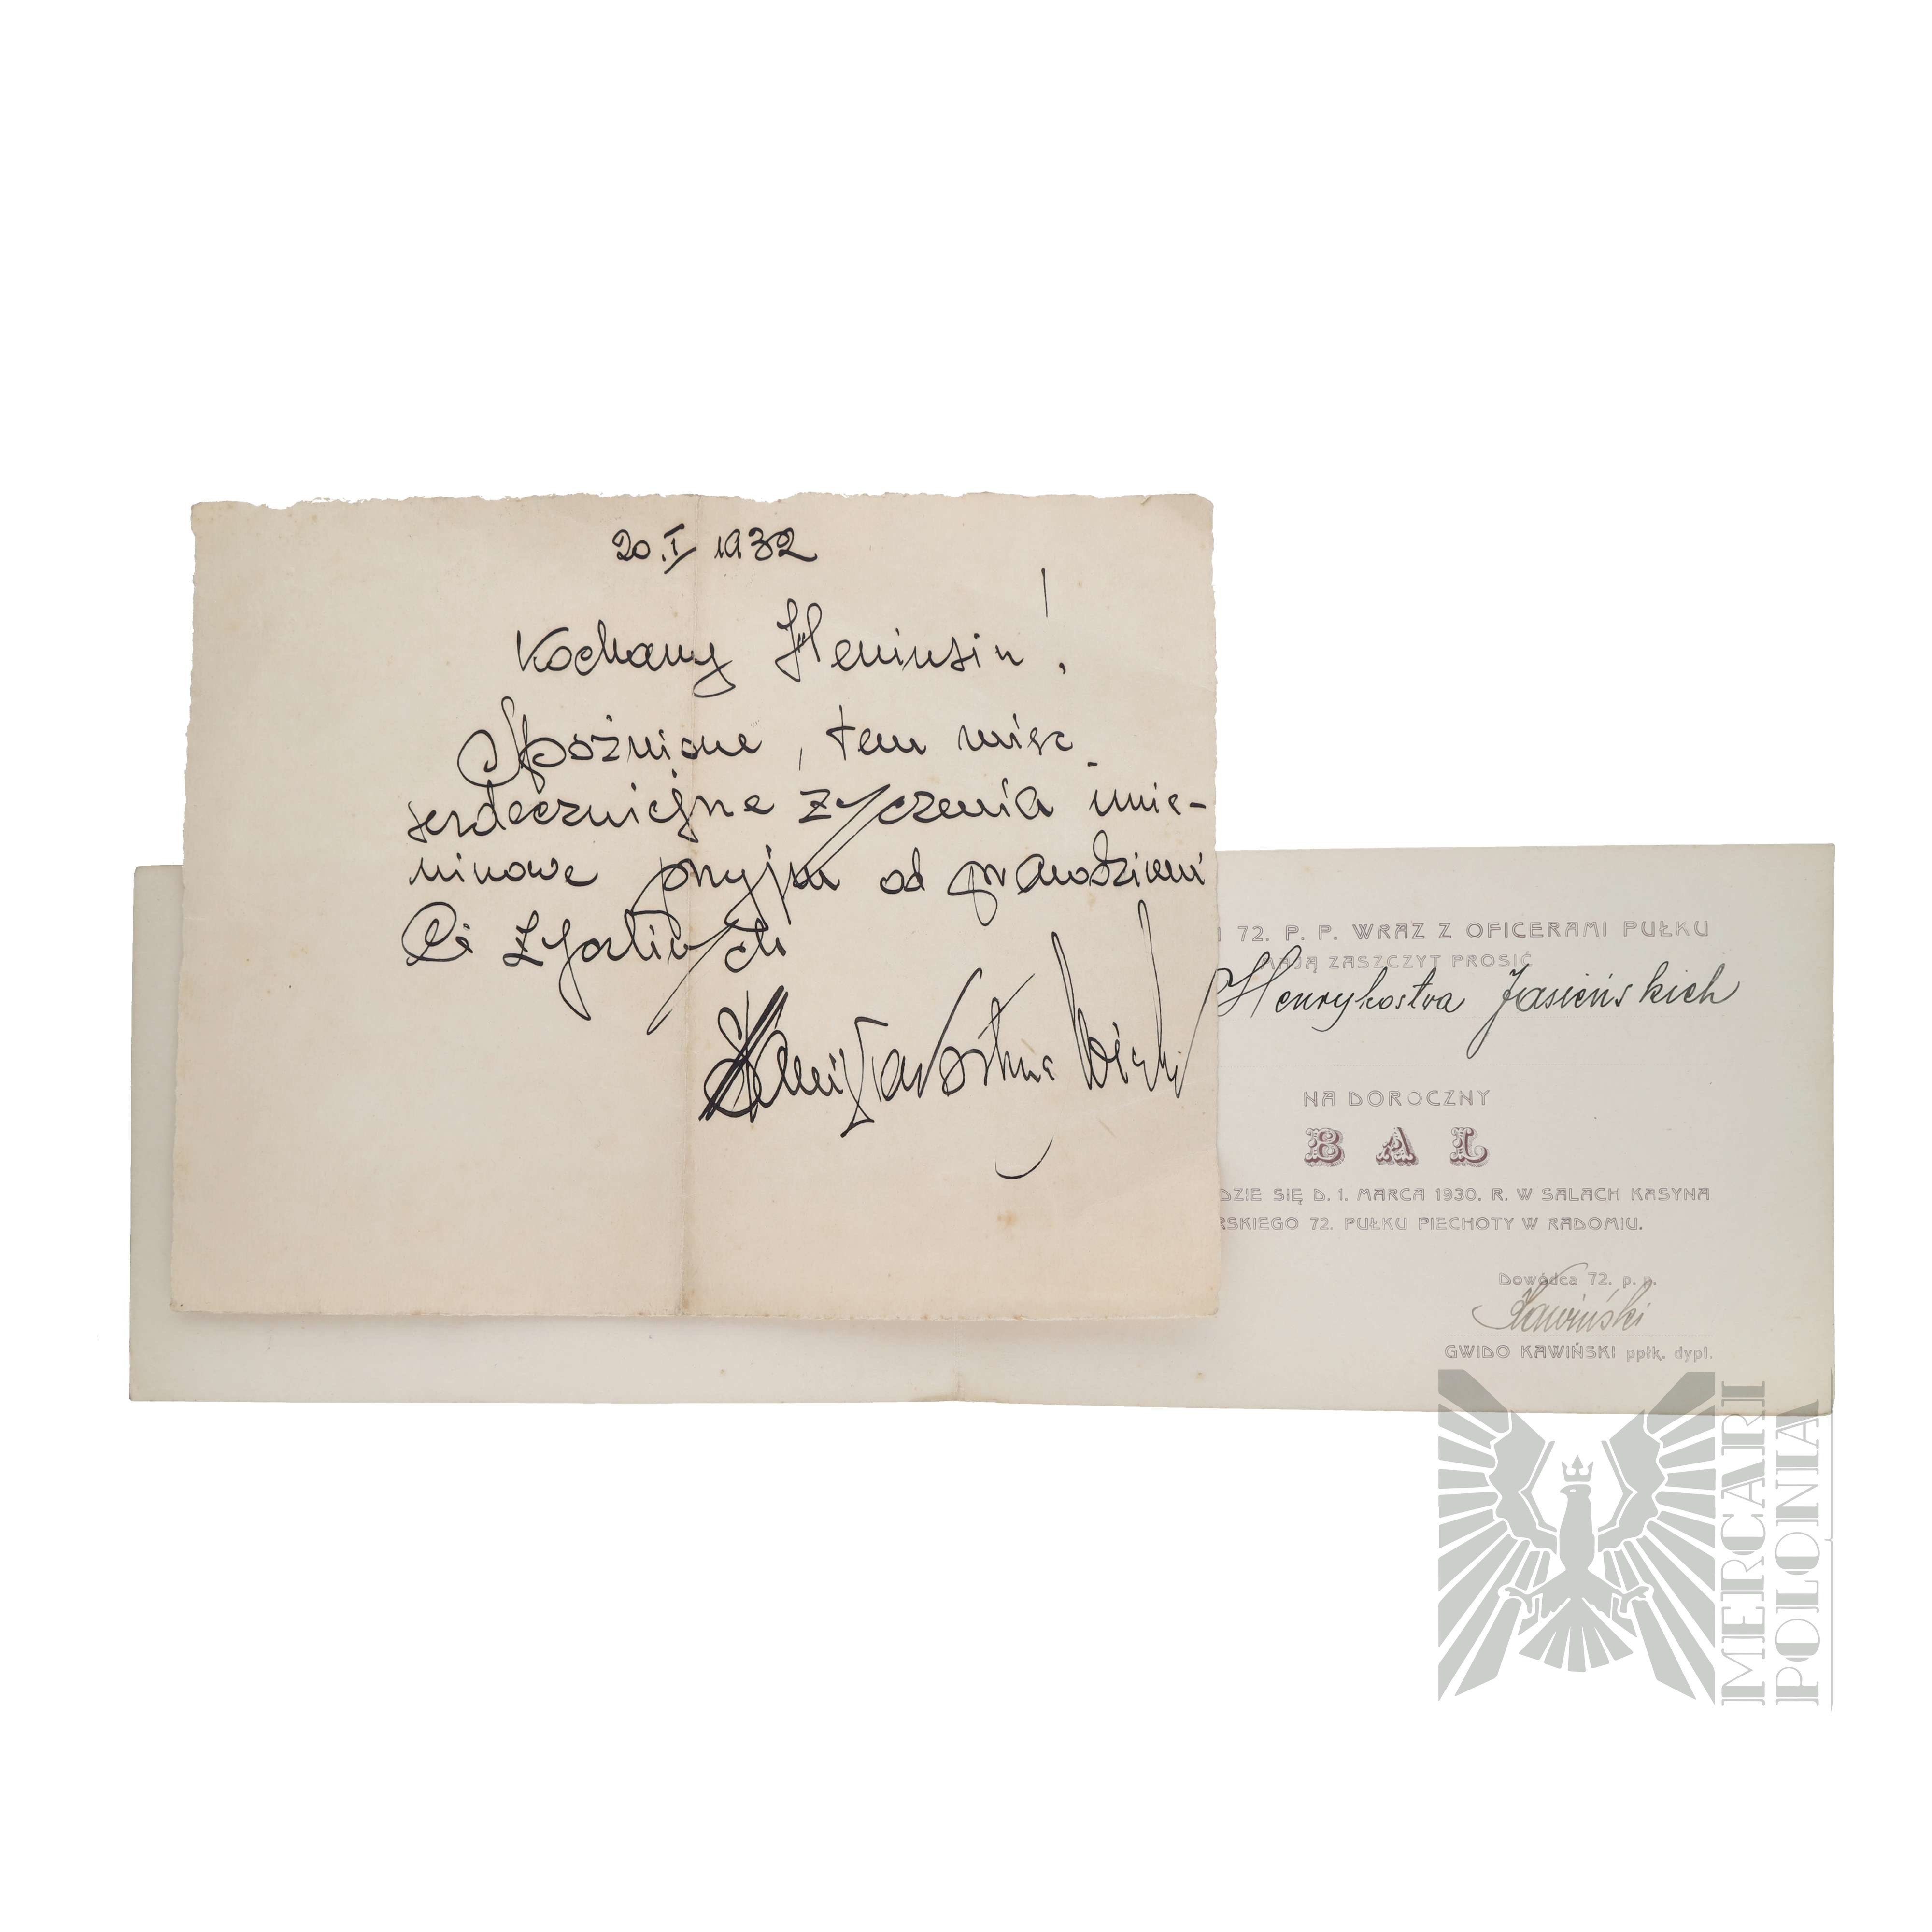 20.I 1932
Kochany Heniusiu!
Spóźnione, tem więc
serdeczniejsze życzenia imie-
ninowe przyjm od prawdziwie
Ci życzliwych
72. P. P. WRAZ Z OFICERAMI PUŁKU
MAJĄ ZASZCZYT PROSIĆ
Henrykostwa Jasieńskich
NA DOROCZNY
BAL
DZIE SIĘ D. 1. MARCA 1930. R. W SALACH KASYNA
RSKIEGO 72. PUŁKU PIECHOTY W RADOMIU.
Dowódca 72. p. p.
Kawiński
GWIDO KAWIŃSKI ppłk. dypl.
MERCARI
POLONIA